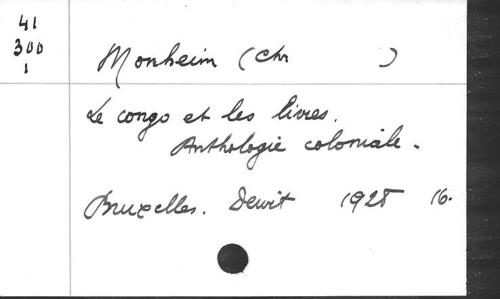 41
300
1
Monheim (Chr )
Le congo et les livres.
Anthologie coloniale.
Bruxelles. Dewit 1928 16.